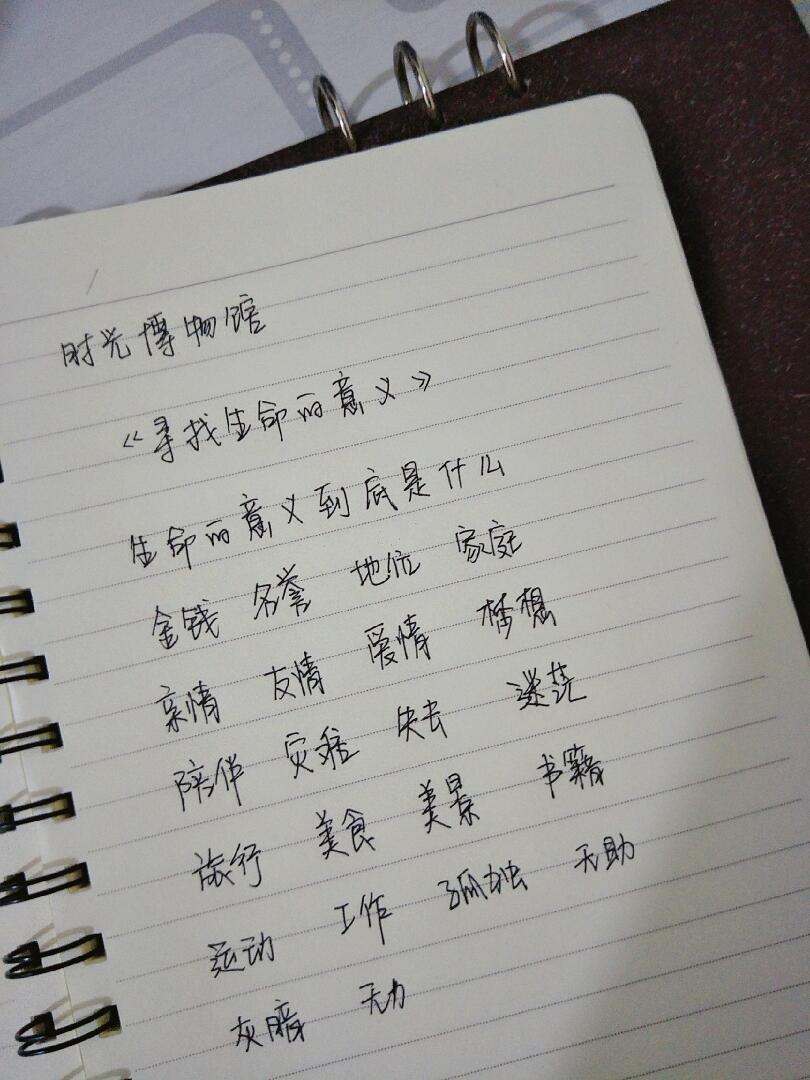 时光博物馆
《寻找生命的意义》
生命的意义到底是什么
金钱 名誉 地位 家庭
亲情 友情 爱情 梦想
陪伴 灾难 失去 迷茫
旅行 美食 美景 书籍
运动 工作 孤独 无助
灰暗 无力